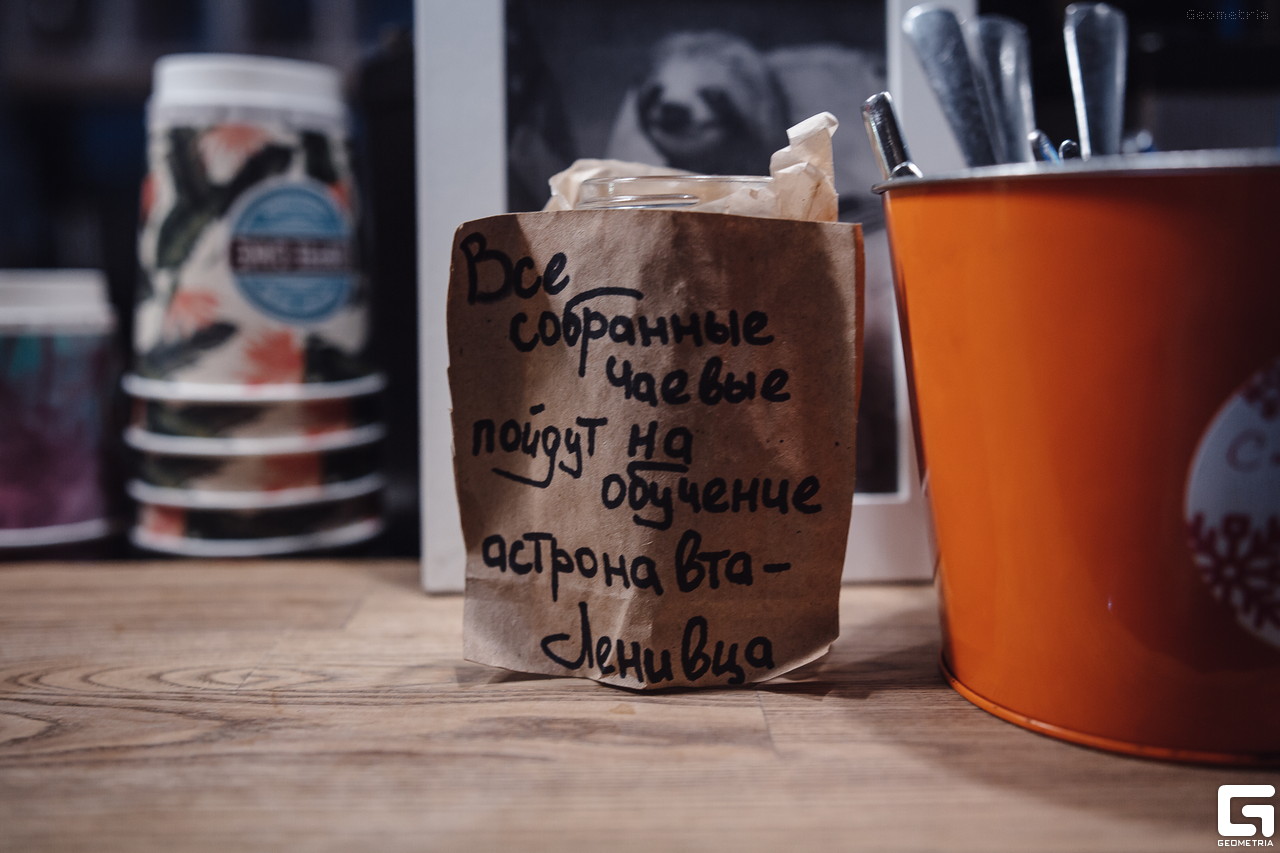 Geometria
Все
собранные
чаевые
пойдут на
обучение
астронавта-
Ленивца
GEOMETRIA